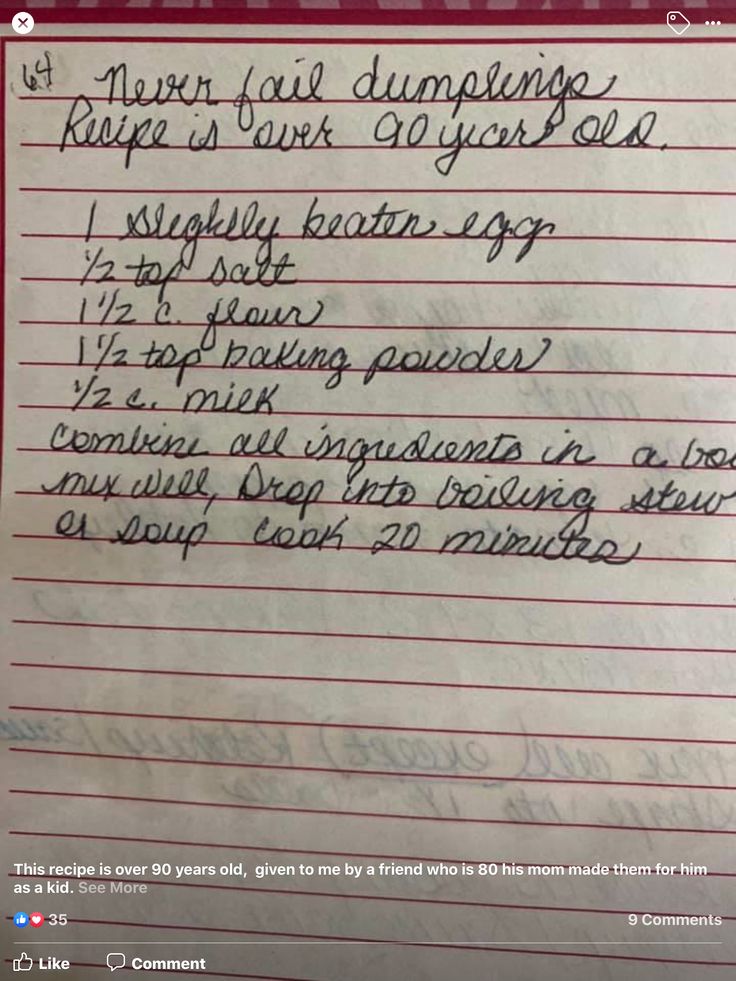 64 Never fail dumplings
Recipe is over 90 years old.
1 slightly beaten egg
1/2 tsp salt
1 1/2 c. flour
1 1/2 tsp baking powder
1/2 c. milk
Combine all ingredients in a
mix well, Drop into boiling stew
or soup cook 20 minutes
This recipe is over 90 years old, given to me by a friend who is 80 his mom made them for him
as a kid. See More
35 9 Comments
Like Comment